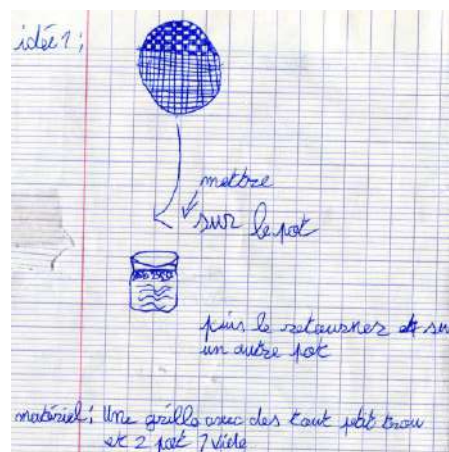 idée 1 :
mettre
sur le pot
puis le retourner et sur
un autre pot
matériel : Une grille avec des tout petit trou
et 2 pot 1 vide